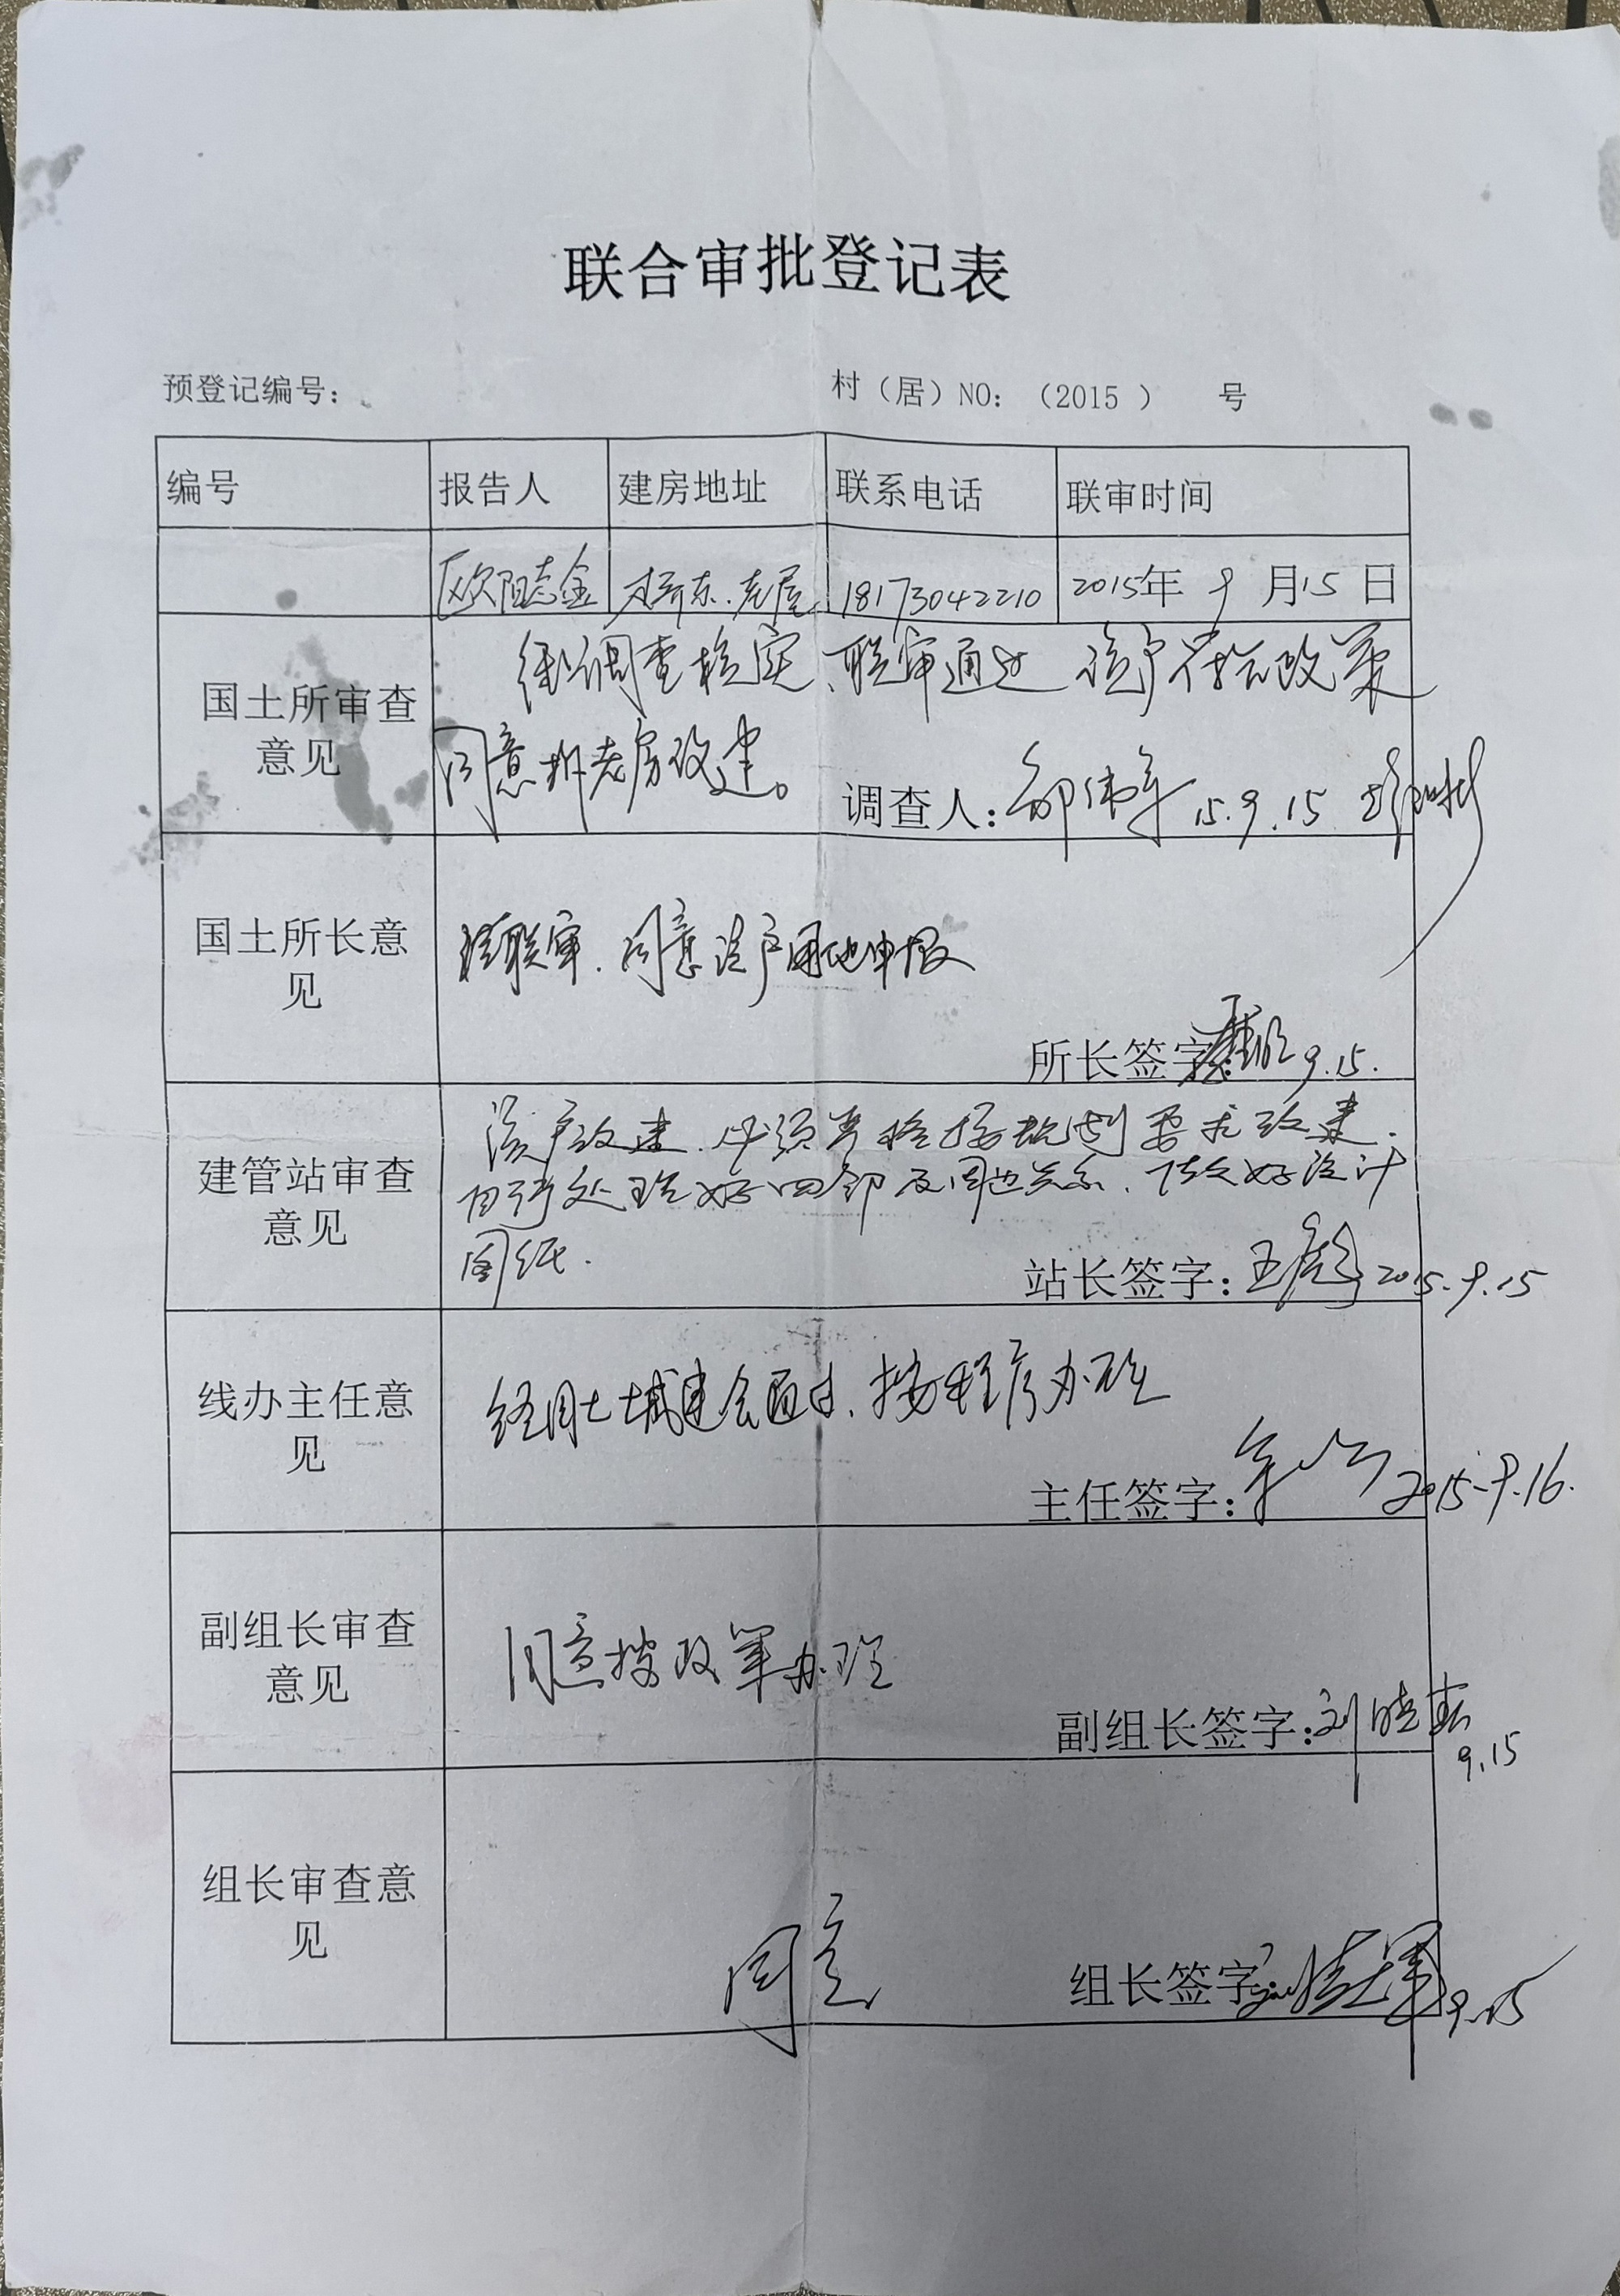 联合审批登记表
预登记编号： 村（居）NO：（2015 ） 号
编号 报告人 建房地址 联系电话 联审时间
欧阳志金 老屋 18173042210 2015年 9 月15 日
国土所审查意见
经调查核实、联审通过 该户符合政策
同意拆老房改建。
调查人： 15.9.15
国土所长意见
经联审.同意该户用地申报
所长签字： 9.15.
建管站审查意见
该户改建.必须严格按规划要求改建.
自行处理好四邻及周边关系.做好设计
图纸.
站长签字： 2015.9.15
线办主任意见
经国土城建会面过、按程序办理
主任签字： 2015-9.16.
副组长审查意见
同意按政策办理
副组长签字：刘晓
9.15
组长审查意见
同意
组长签字： 9.15